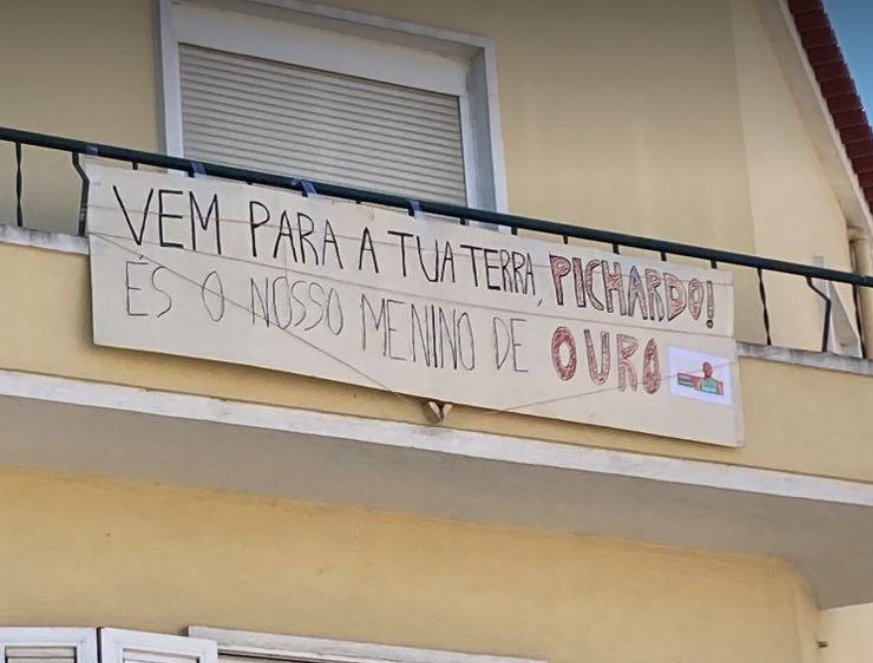 VEM PARA A TUA TERRA, PICHARDO!
ÉS O NOSSO MENINO DE OURO